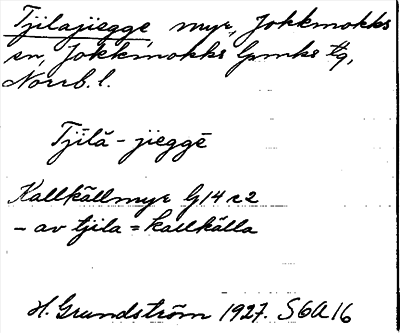 Tjilajiegge, myr, Jokkmokks
sn, Jokkmokks lpmks tg,
Norrb. l.
Tjilā - jieggē
Kallkällmyr G14 r2
- av tjila = kallkälla
H. Grundström 1927. S6A16